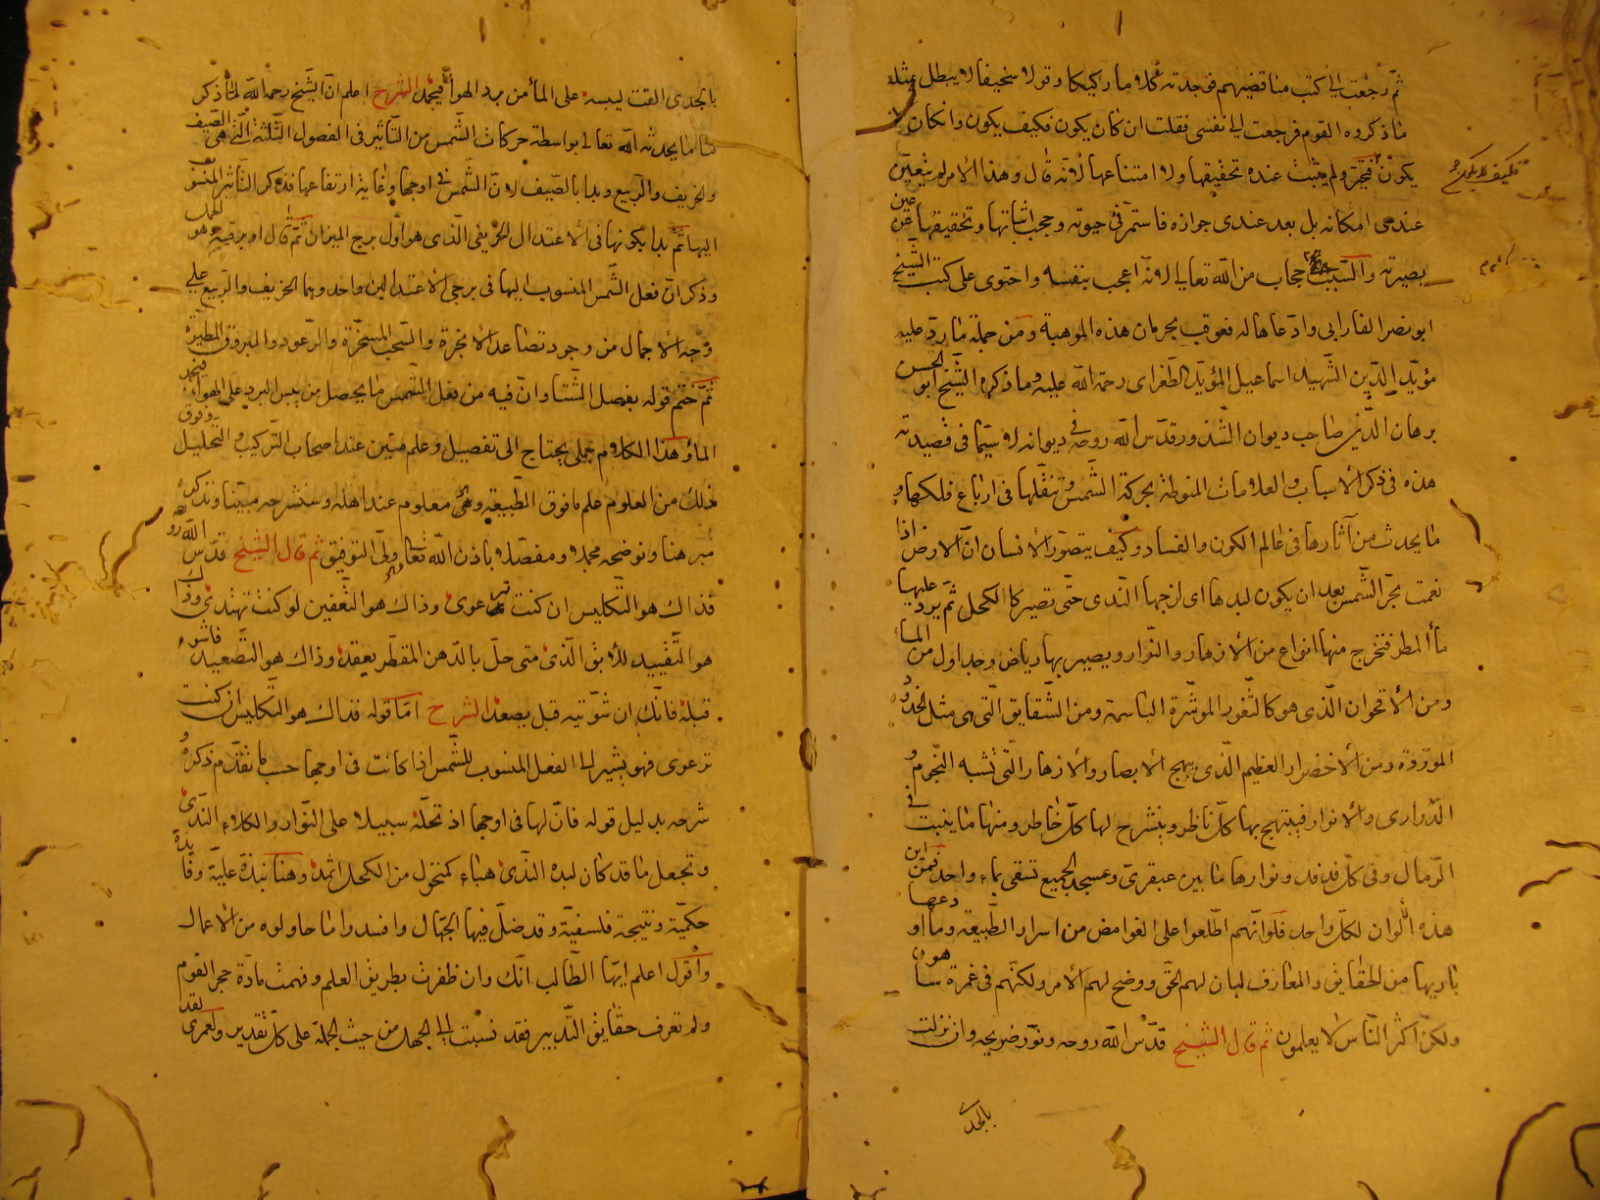 ثم رجعت الى كتب مناقضيهم فوجدته كلاما ركيكا وقولا سخيفا لا يبطل بمثله
ما ذكروه القوم فرجعت الى نفسى فقلت ان كان يكون فكيف يكون وان كان لا
يكون ولم يثبت عنده تحقيقها ولا امتناعها لانه قال وهذا الامر لم يتعين
عندى امكانه بل بعد عندى جوازه فاستمر فى حيوته وحجب اثباتها وتحقيقها عن عين
بصيرته والسبب حجاب من الله تعالى لانه اعجب بنفسه واحتوى على كتب الشيخ
ابو نصر الفارابى وادعاها له فعوقب بحرمان هذه الموهبة ومن جملة ما رد عليه
مؤيد الدين الشهيد اسماعيل المؤيد الطغراى رحمة الله عليه وما ذكره الشيخ ابو الحسن
برهان الدين صاحب ديوان الشذور قدس الله روحه فى ديوانه لا سيما فى قصيدته
هذه فى ذكر الاسباب والعلامات المنوطة بحركة الشمس وتنقلها فى ارباع فلكها و
ما يحدث من آثارها فى عالم الكون والفساد وكيف يتصور الانسان ان الارض اذا
نعمت بحر الشمس بعد ان يكون لبدها اى لزجها الندى حتى تصير كالكحل ثم يرد عليها
ماء المطر فتخرج منها انواع من الازهار والنوار ويصير بها رياض وجداول من الماء
ومن الاقحوان الذى هو كالثغور الموشرة الباسمة ومن الشقايق التى هى مثل الخدود
الموردة ومن الاخضرار العظيم الذى يبهج الابصار والازهار التى تشبه النجوم و
الدرارى والانوار فيبتهج بها كل ناظر وينشرح لها كل خاطر ومنها ما ينبت فى
الرمال وفى كل فدفد ونوارها ما بين عبقرى وعسجد الجميع تسقى بماء واحد فمن اين
هذه الالوان لكل واحد فلو انهم اطلعوا على الغوامض من اسرار الطبيعة وما اودعها
باريها من الحقايق والمعارف لبان لهم الحق ووضح لهم الامر ولكنهم فى غمرة ساهون
ولكن اكثر الناس لا يعلمون ثم قال الشيخ قدس الله روحه ونور ضريحه وان نزلت
بالجدى
بالجدى القت ليبسه على الماء من برد الهواء فيجمد الشرح اعلم ان الشيخ رحمه الله لما ذكر
لنا ما يحدثه الله تعالى بواسطة حركات الشمس من التاثير فى الفصول الثلثة التى هى الصيف
والخريف والربيع وبدا بالصيف لان الشمس فى اوجها وغاية ارتفاعها فذكر التاثير المنسوب
اليها ثم بدا بكونها فى الاعتدال الخريفى الذى هو اول برج الميزان ثم قال او برقية وهو الحمل
وذكر ان فعل الشمس المنسوب اليها فى برجى الاعتدالين واحد وهما الخريف والربيع على
وجه الاجمال من وجود تصاعد الابخرة والسحب المسخرة والرعود والبروق المطيرة
ثم ختم قوله بفصل الشتا وان فيه من فعل الشمس ما يحصل من يبس البرد على الهواء فيجمد
الماء وهذا الكلام جملى يحتاج الى تفصيل وعلم متين عند اصحاب التركيب والتحليل وفوق
ذلك من العلوم علم ما فوق الطبيعة وهى معلوم عند اهله وسنشرحه مبينا ونذكره
مبرهنا ونوضحه مجملا ومفصلا باذن الله تعالى ولى التوفيق ثم قال الشيخ قدس الله روحه
فذاك هو التكليس ان كنت ترعوى وذاك هو التعفين لو كنت تهتدى وذا
هو التقييد للآبق الذى متى حل بالدهن المقطر يعقد وذاك هو التصعيد فاشوه
قبله فانك ان شويته قبل يصعد الشرح اما قوله فذاك هو التكليس ان كنت
ترعوى فهو يشير الى الفعل المنسوب للشمس اذا كانت فى اوجها حسب ما تقدم ذكره و
شرحه بدليل قوله فان لها فى اوجها اذ تحله سبيلا على النوار والكلاء الندى
وتجعل ما قد كان لبده الندى هباء كمنحول من الكحل اثمد وهنا نبذة علية وفايدة
حكمية ونتيجة فلسفية وقد ضل فيها الجهال وافسدوا ما حاولوه من الاعمال
واقول اعلم ايها الطالب انك وان ظفرت بطريق العلم وفهمت مادة حجر القوم
ولم تعرف حقايق التدبير فقد نسبت الى الجهل من حيث الجملة على كل تقدير ولعمرى لقد